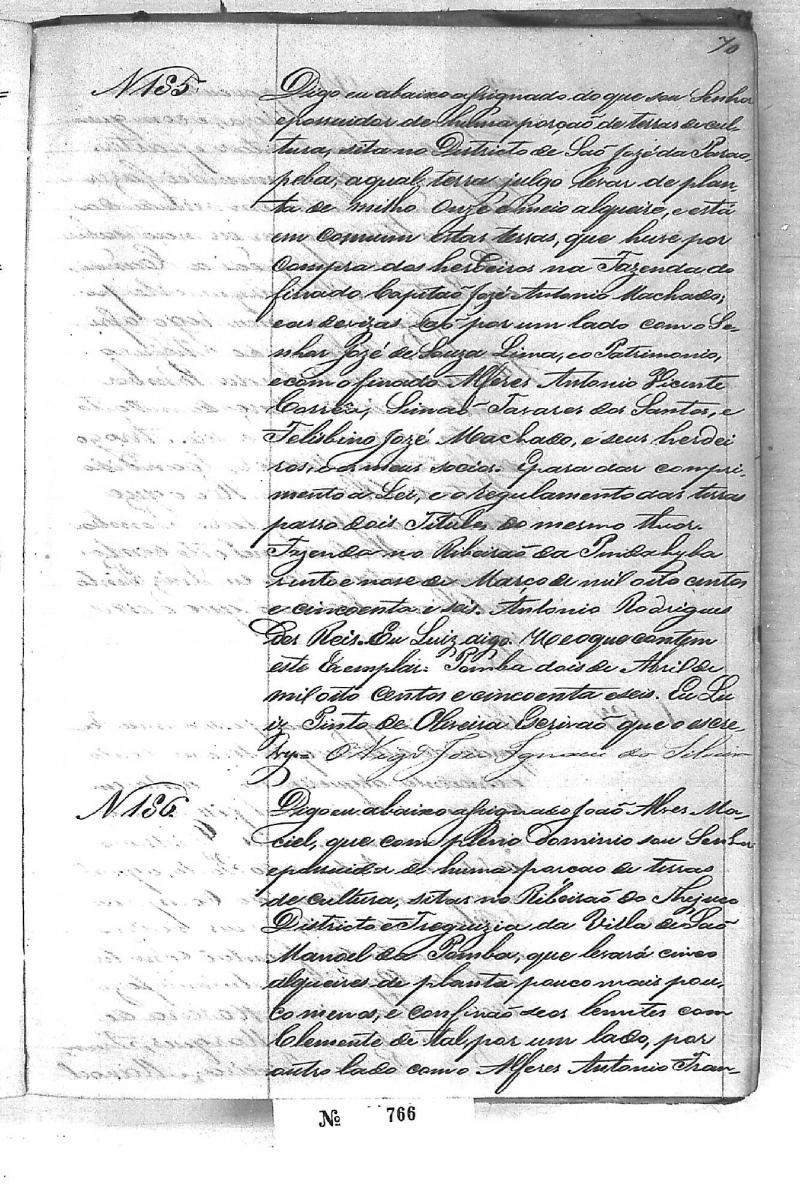 70
N 185.
Digo eu abaixo assignado do que sou Senhor
e possuidor de huma porção de terras de cul-
tura, sita no Districto de São Jozé da Parao-
peba, a qual terra julgo levar de plan-
ta de milho Onze e meio alqueire, e está
em comum estas terras, que huve por
Compra dos herdeiros na Fazenda do
finado Capitaõ Jozé Antonio Machado;
e as devizas saõ por um lado com o Se-
nhor Jozé de Souza Lima, e o Patrimonio,
e com o finado Alferes Antonio Vicente
Corrêa, Simaõ Tavares dos Santos, e
Felisbino Jozé Machado, e seus herdei
ros, e os meus socios. E para dar compri-
mento a Lei, e o regulamento das terras
passo dois Titulos do mesmo theor.
Fazenda no Ribeiraõ da Pindahyba
vinte e nove de Março de mil oito centos
e cincoenta e seis. Antonio Rodrigues
Dos Reis. Eu Luiz digo. He o que contem
este Exemplar. Pomba dois de Abril de
mil oito centos e cincoenta e seis. Eu Lu
iz Pinto de Oliveira Escrivaõ que o escre-
vy= O Vigrº Joze Ignacio da Silva
N 186.
Digo eu abaixo assignado Joaõ Alves Ma-
ciel, que com pleno dominio sou Senhor
e possuidor de huma porcaõ de terras
de cultura, sitas no Ribeiraõ do Thejuco
Districto e Freguizia da Villa de Saõ
Manoel da Pomba, que levará cinco
alqueires de planta pouco mais pou-
co menos, e confinaõ seos lemites com
Clemente de tal por um lado, por
outro lado com o Alferes Antonio Fran-
Nº 766